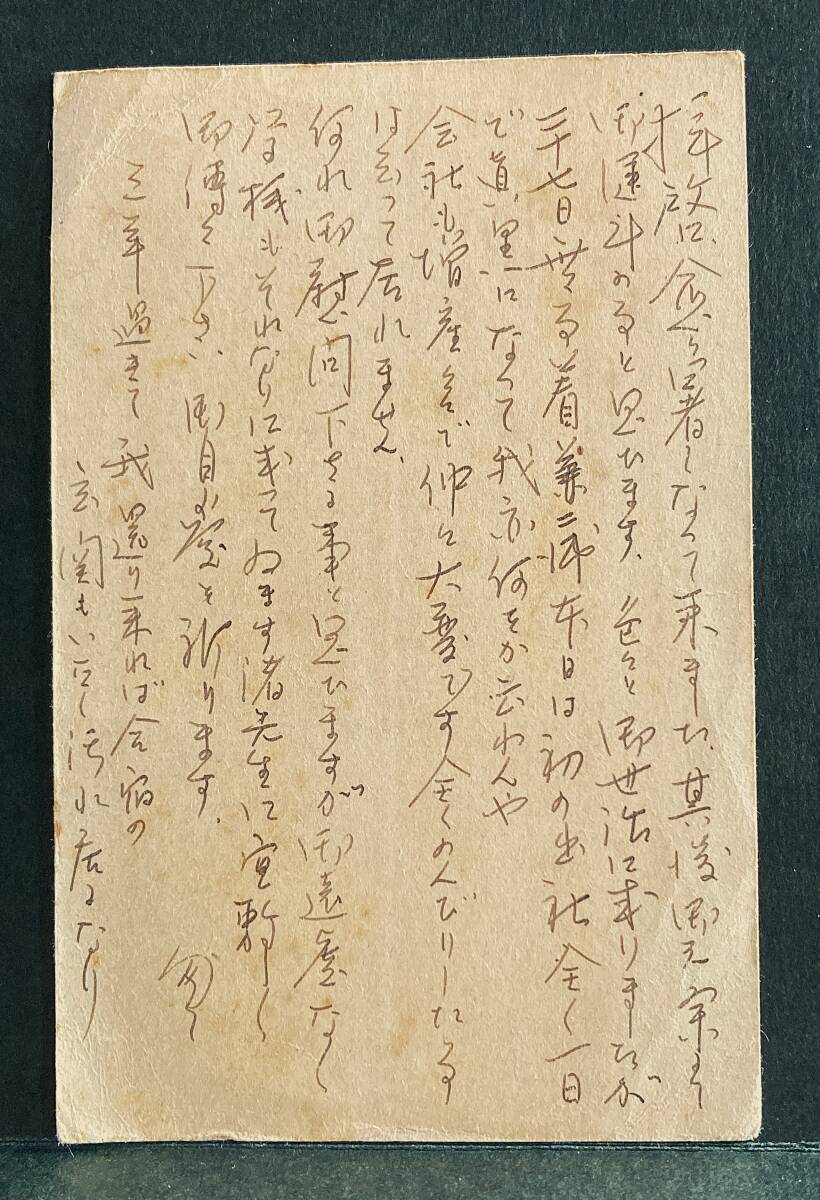 拝啓 愈々口者くなって来ました、其後御元気にて
御運斗のると思ひます、色々と御世話に成りましたが
二十七日無事着業二師本日は初の出社全く一日
で真黒になって我亦何をか云わんや
会社も増産々で仲々大変です全くのんびりした事
は云って居れません、
何れ御慰問下さる事と思ひますが御遠慮なく
俊様もそれなりに成ってゐます諸先生に宜敷く
御傳へ下さい 御自愛を祈ります、
匆々
三年過きて我還り来れば合宿の
玄関もいたく汚れ居るなり